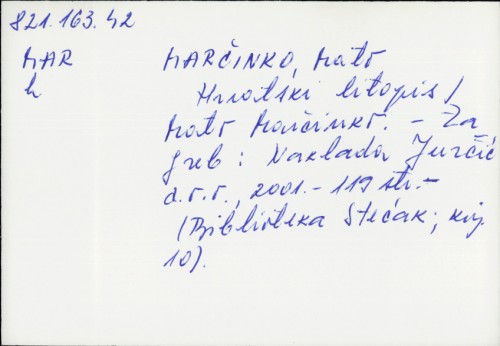 821.163.42
MAR
h
MARČINKO, Mato
Hrvatski litopis /
Mato Marčinko. - Za
greb : Naklada Jurčić
d.o.o., 2001. - 119 str. -
(Biblioteka Stećak ; knj.
10).